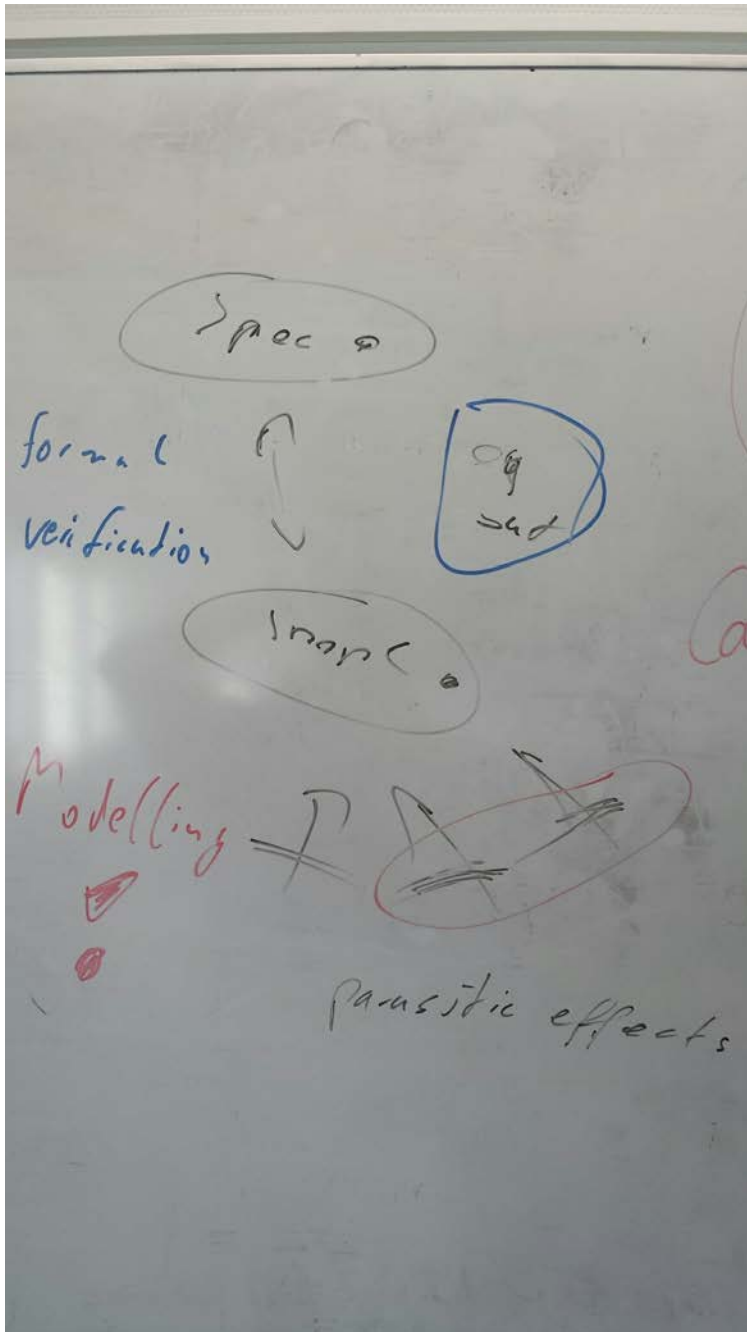 Spec
formal
verification
Impl
Modelling
parasitic effects